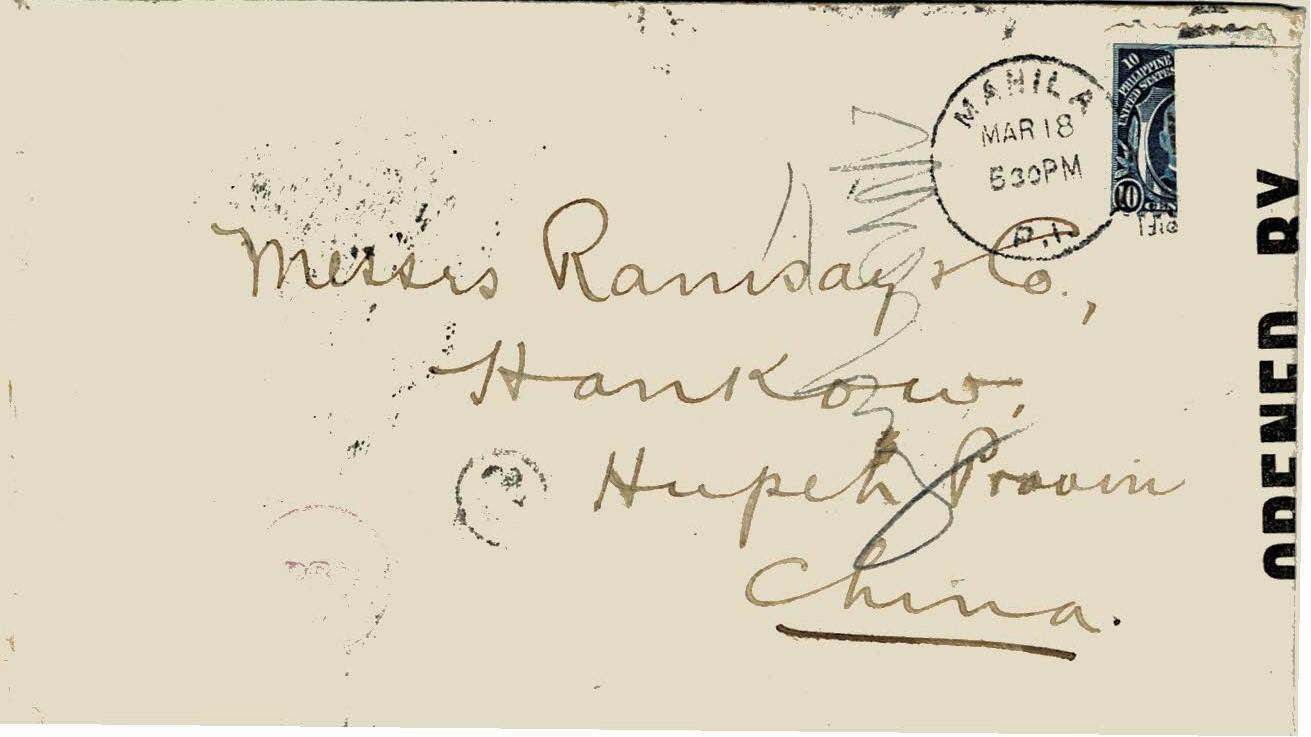 MANILA
MAR 18
530PM
P.I.
10
PHILIPPINE
UNITED STATES
10
Messrs Ramsay & Co.,
Hankow,
Hupeh Provin
China.
OPENED BY